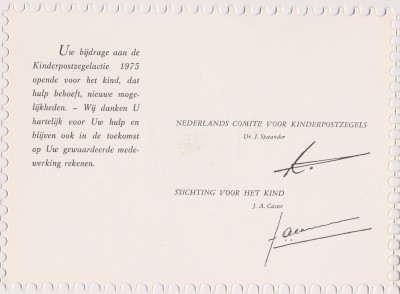 Uw bijdrage aan de
Kinderpostzegelactie 1975
opende voor het kind, dat
hulp behoeft, nieuwe moge-
lijkheden. – Wij danken U
hartelijk voor Uw hulp en
blijven ook in de toekomst
op Uw gewaardeerde mede-
werking rekenen.
NEDERLANDS COMITE VOOR KINDERPOSTZEGELS
Dr. J. Spaander
STICHTING VOOR HET KIND
J. A. Caron